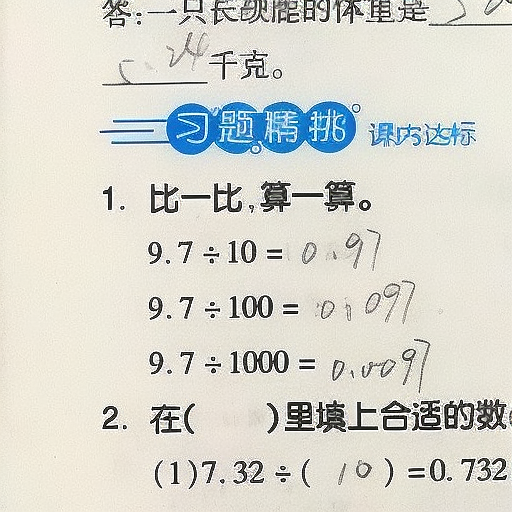 答:一只长颈鹿的体重是
5.24千克。
习题精挑 课内达标
1. 比一比,算一算。
9.7÷10=0.97
9.7÷100=0.097
9.7÷1000=0.0097
2. 在( )里填上合适的数
(1)7.32÷(10)=0.732